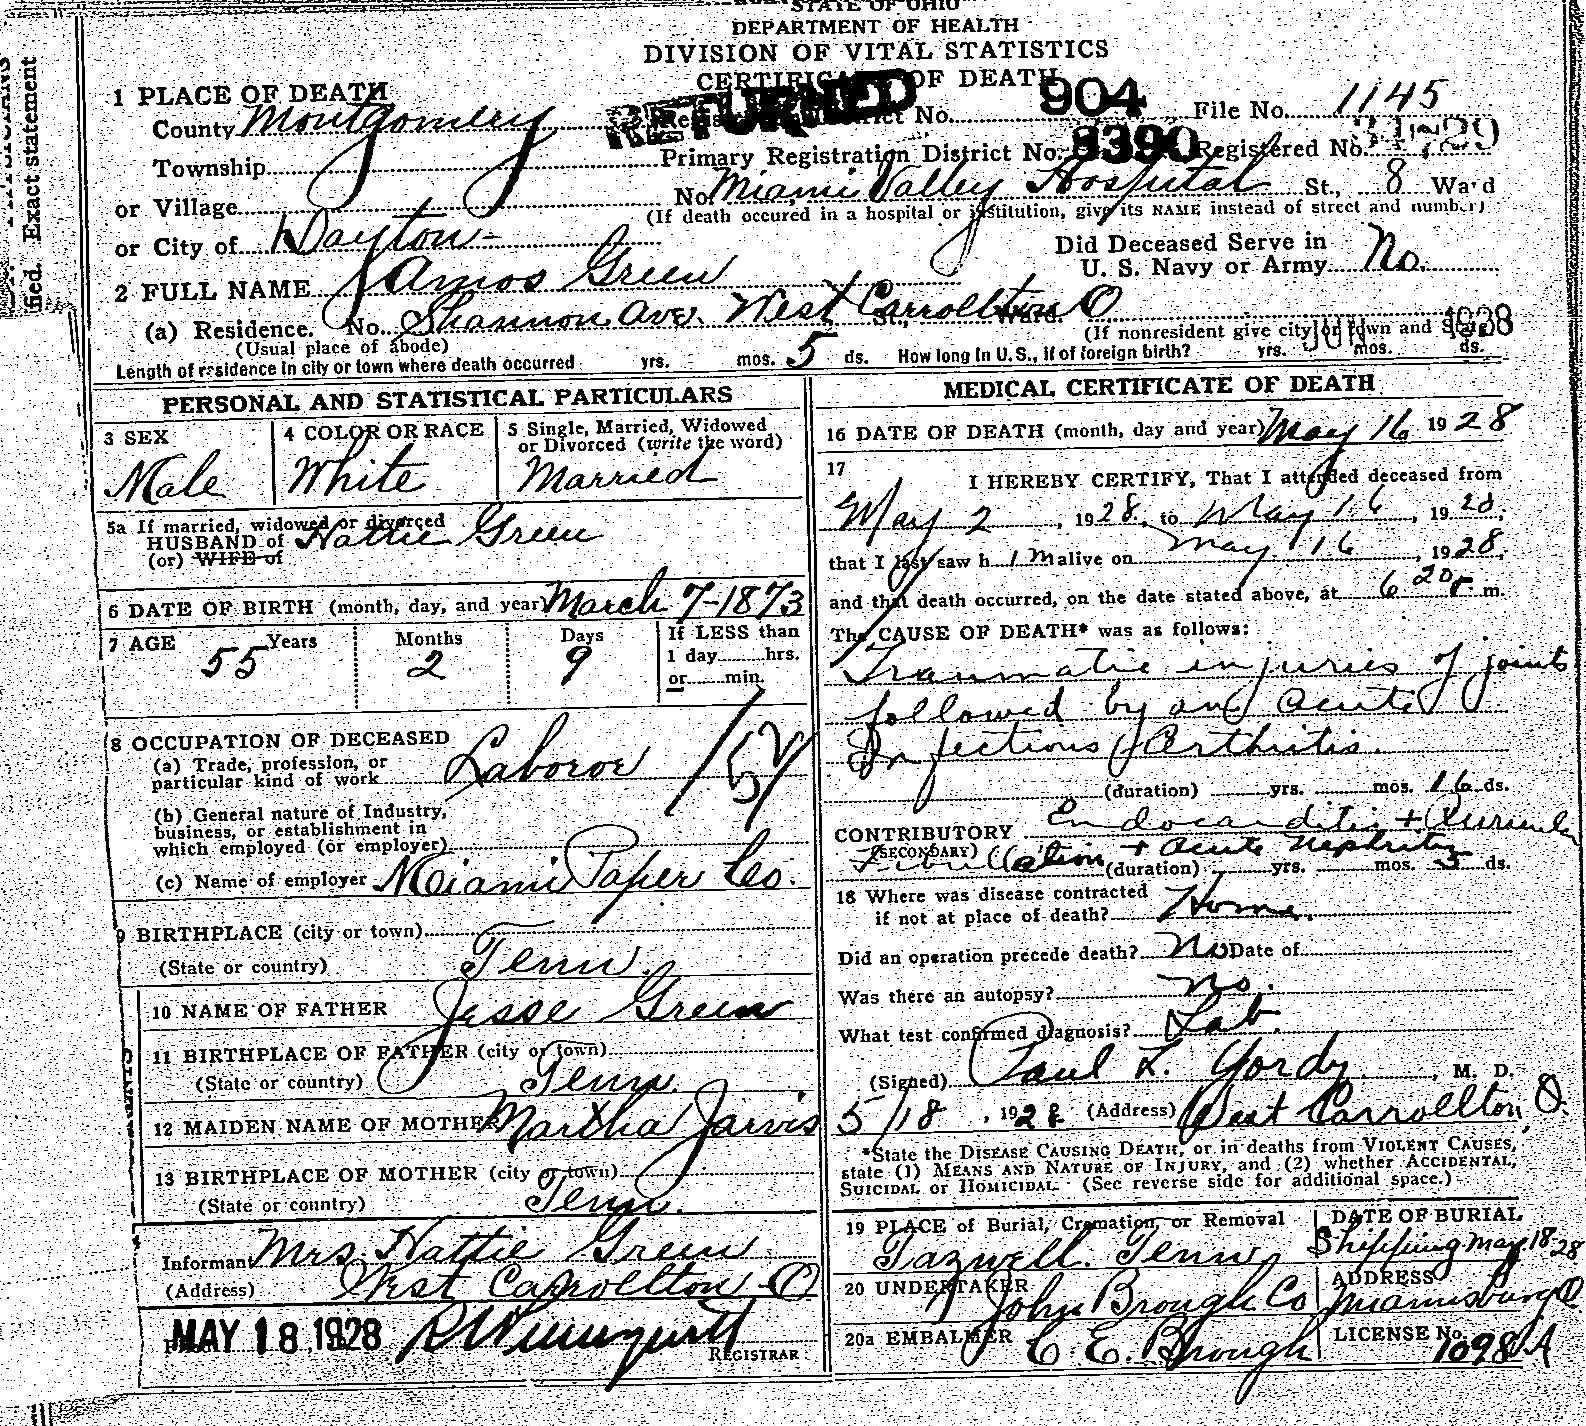 STATE OF OHIO
DEPARTMENT OF HEALTH
DIVISION OF VITAL STATISTICS
CERTIFICATE OF DEATH
RETURNED
1 PLACE OF DEATH
County Montgomery District No. 904 File No. 1145
Township Primary Registration District No. 8390 Registered No.
or Village No. Miami Valley Hospital St., 8 Ward
(If death occured in a hospital or institution, give its NAME instead of street and number)
or City of Dayton
Did Deceased Serve in
U. S. Navy or Army No.
2 FULL NAME Amos Green
(a) Residence. No. Shannon Ave. West Carrollton O St., Ward.
(Usual place of abode) (If nonresident give city or town and State)
JUN 1928
Length of residence in city or town where death occurred yrs. mos. 5 ds. How long in U.S., if of foreign birth? yrs. mos. ds.
Exact statement
fied.
PERSONAL AND STATISTICAL PARTICULARS
3 SEX
Male
4 COLOR OR RACE
White
5 Single, Married, Widowed
or Divorced (write the word)
Married
5a If married, widowed or divorced
HUSBAND of Hattie Green
(or) WIFE of
6 DATE OF BIRTH (month, day, and year) March 7-1873
7 AGE Years Months Days If LESS than
55 2 9 1 day hrs.
or min.
8 OCCUPATION OF DECEASED
(a) Trade, profession, or
particular kind of work Laboror
(b) General nature of Industry,
business, or establishment in
which employed (or employer)
(c) Name of employer Miami Paper Co.
9 BIRTHPLACE (city or town)
(State or country) Tenn.
10 NAME OF FATHER Jesse Green
11 BIRTHPLACE OF FATHER (city or town)
(State or country) Tenn.
12 MAIDEN NAME OF MOTHER Martha Jarvis
13 BIRTHPLACE OF MOTHER (city or town)
(State or country) Tenn.
Informant Mrs. Hattie Green
(Address) West Carrollton O
MAY 18, 1928
REGISTRAR
MEDICAL CERTIFICATE OF DEATH
16 DATE OF DEATH (month, day and year) May 16 1928
17
I HEREBY CERTIFY, That I attended deceased from
May 2, 1928, to May 16, 1928,
that I last saw h im alive on May 16, 1928,
and that death occurred, on the date stated above, at 6 20 P m.
The CAUSE OF DEATH* was as follows:
Traumatic injuries of joints
followed by an acute
Infectious Arthritis.
(duration) yrs. mos. 16 ds.
CONTRIBUTORY Endocarditis + Auricular
(SECONDARY) Fibrillation + Acute Nephritis
(duration) yrs. mos. 5 ds.
18 Where was disease contracted
if not at place of death? Home.
Did an operation precede death? No Date of
Was there an autopsy? No.
What test confirmed diagnosis? Lab.
(Signed) Paul L. Gordy, M. D.
5/18, 1928 (Address) West Carrollton O.
*State the DISEASE CAUSING DEATH, or in deaths from VIOLENT CAUSES,
state (1) MEANS AND NATURE OF INJURY, and (2) whether ACCIDENTAL,
SUICIDAL or HOMICIDAL (See reverse side for additional space.)
19 PLACE of Burial, Cremation, or Removal
Tazwell. Tenn.
DATE OF BURIAL
Shipping May 18 28
20 UNDERTAKER
John Brough Co
ADDRESS
Miamisburg O
20a EMBALMER
C. E. Brough
LICENSE No.
1098 A